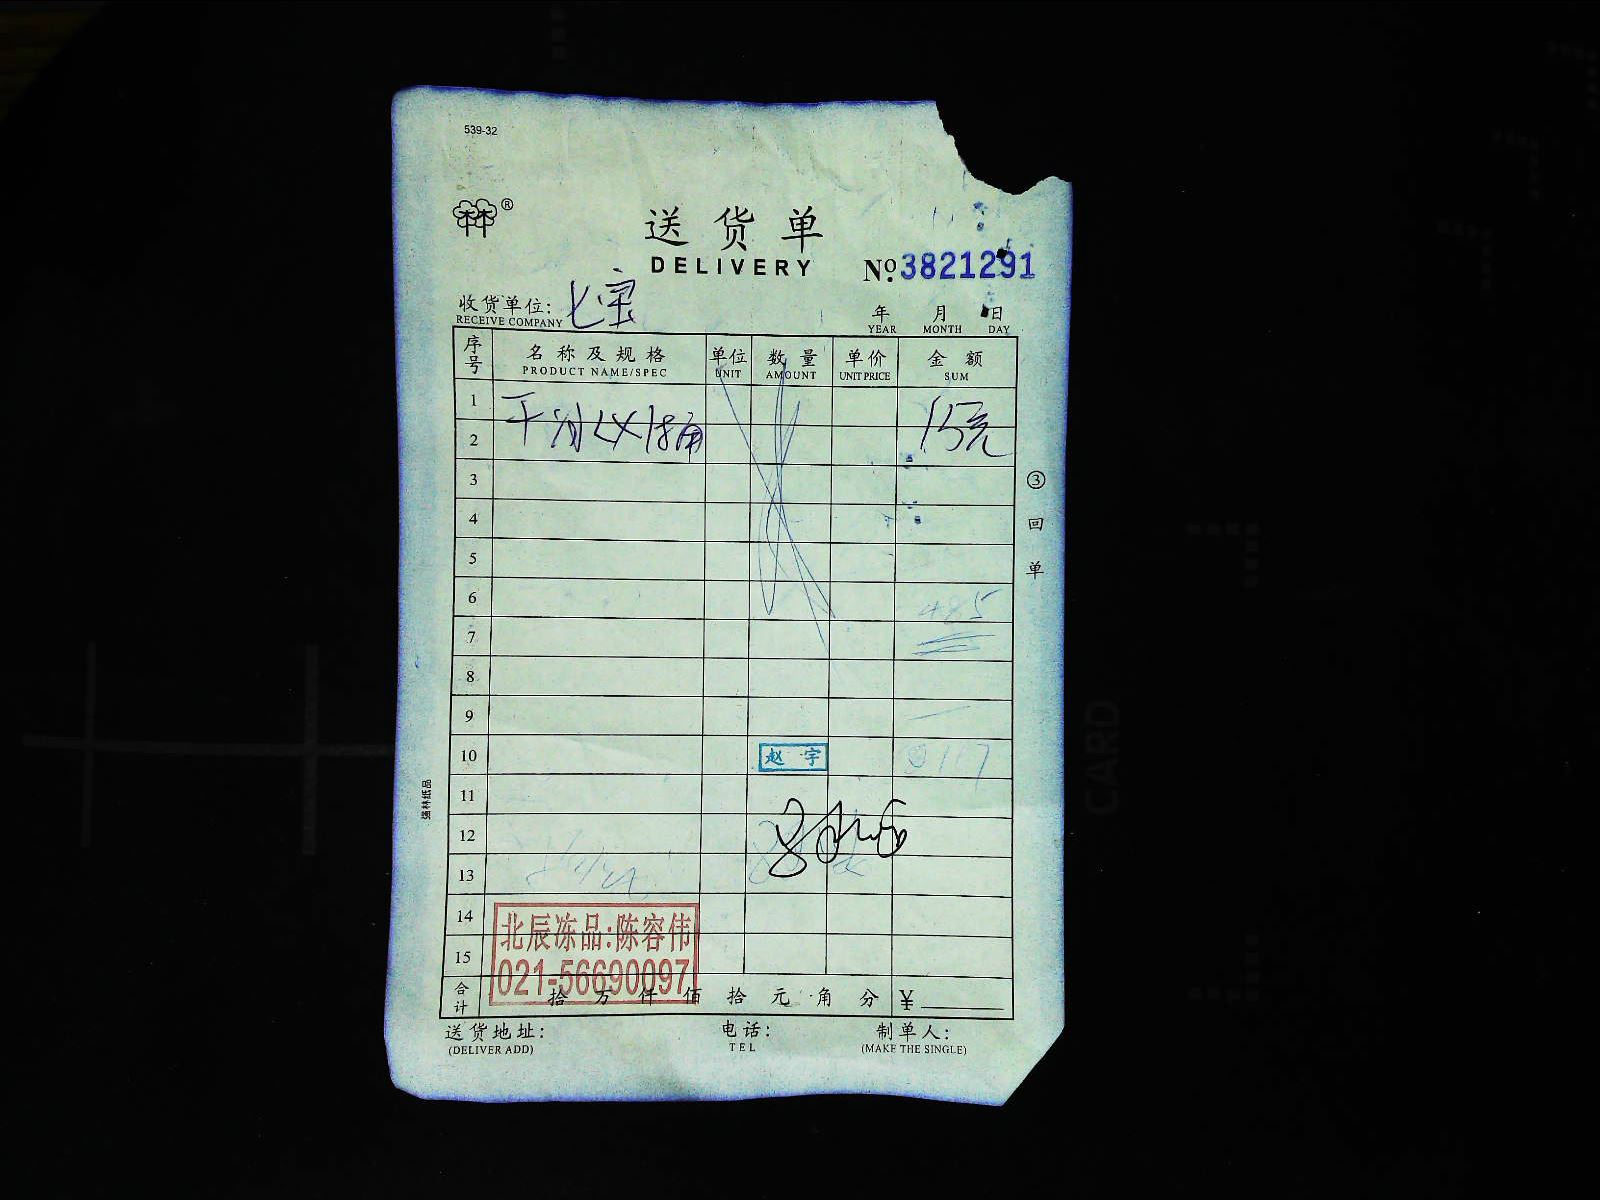 539-32
林林®
送货单
DELIVERY
№.3821291
收货单位: 七宝
RECEIVE COMPANY
年 月 日
YEAR MONTH DAY
序号 名称及规格 单位 数量 单价 金额
PRODUCT NAME/SPEC UNIT AMOUNT UNIT PRICE SUM
1 15元
2
3
4
5
6 485
7
8
9
10 赵宇 0117
11
12
13
14
15
③回单
强林纸品
北辰冻品:陈容伟
021-56690097
合计 拾万仟佰拾元角分 ¥
送货地址: 电话: 制单人:
(DELIVER ADD) TEL (MAKE THE SINGLE)